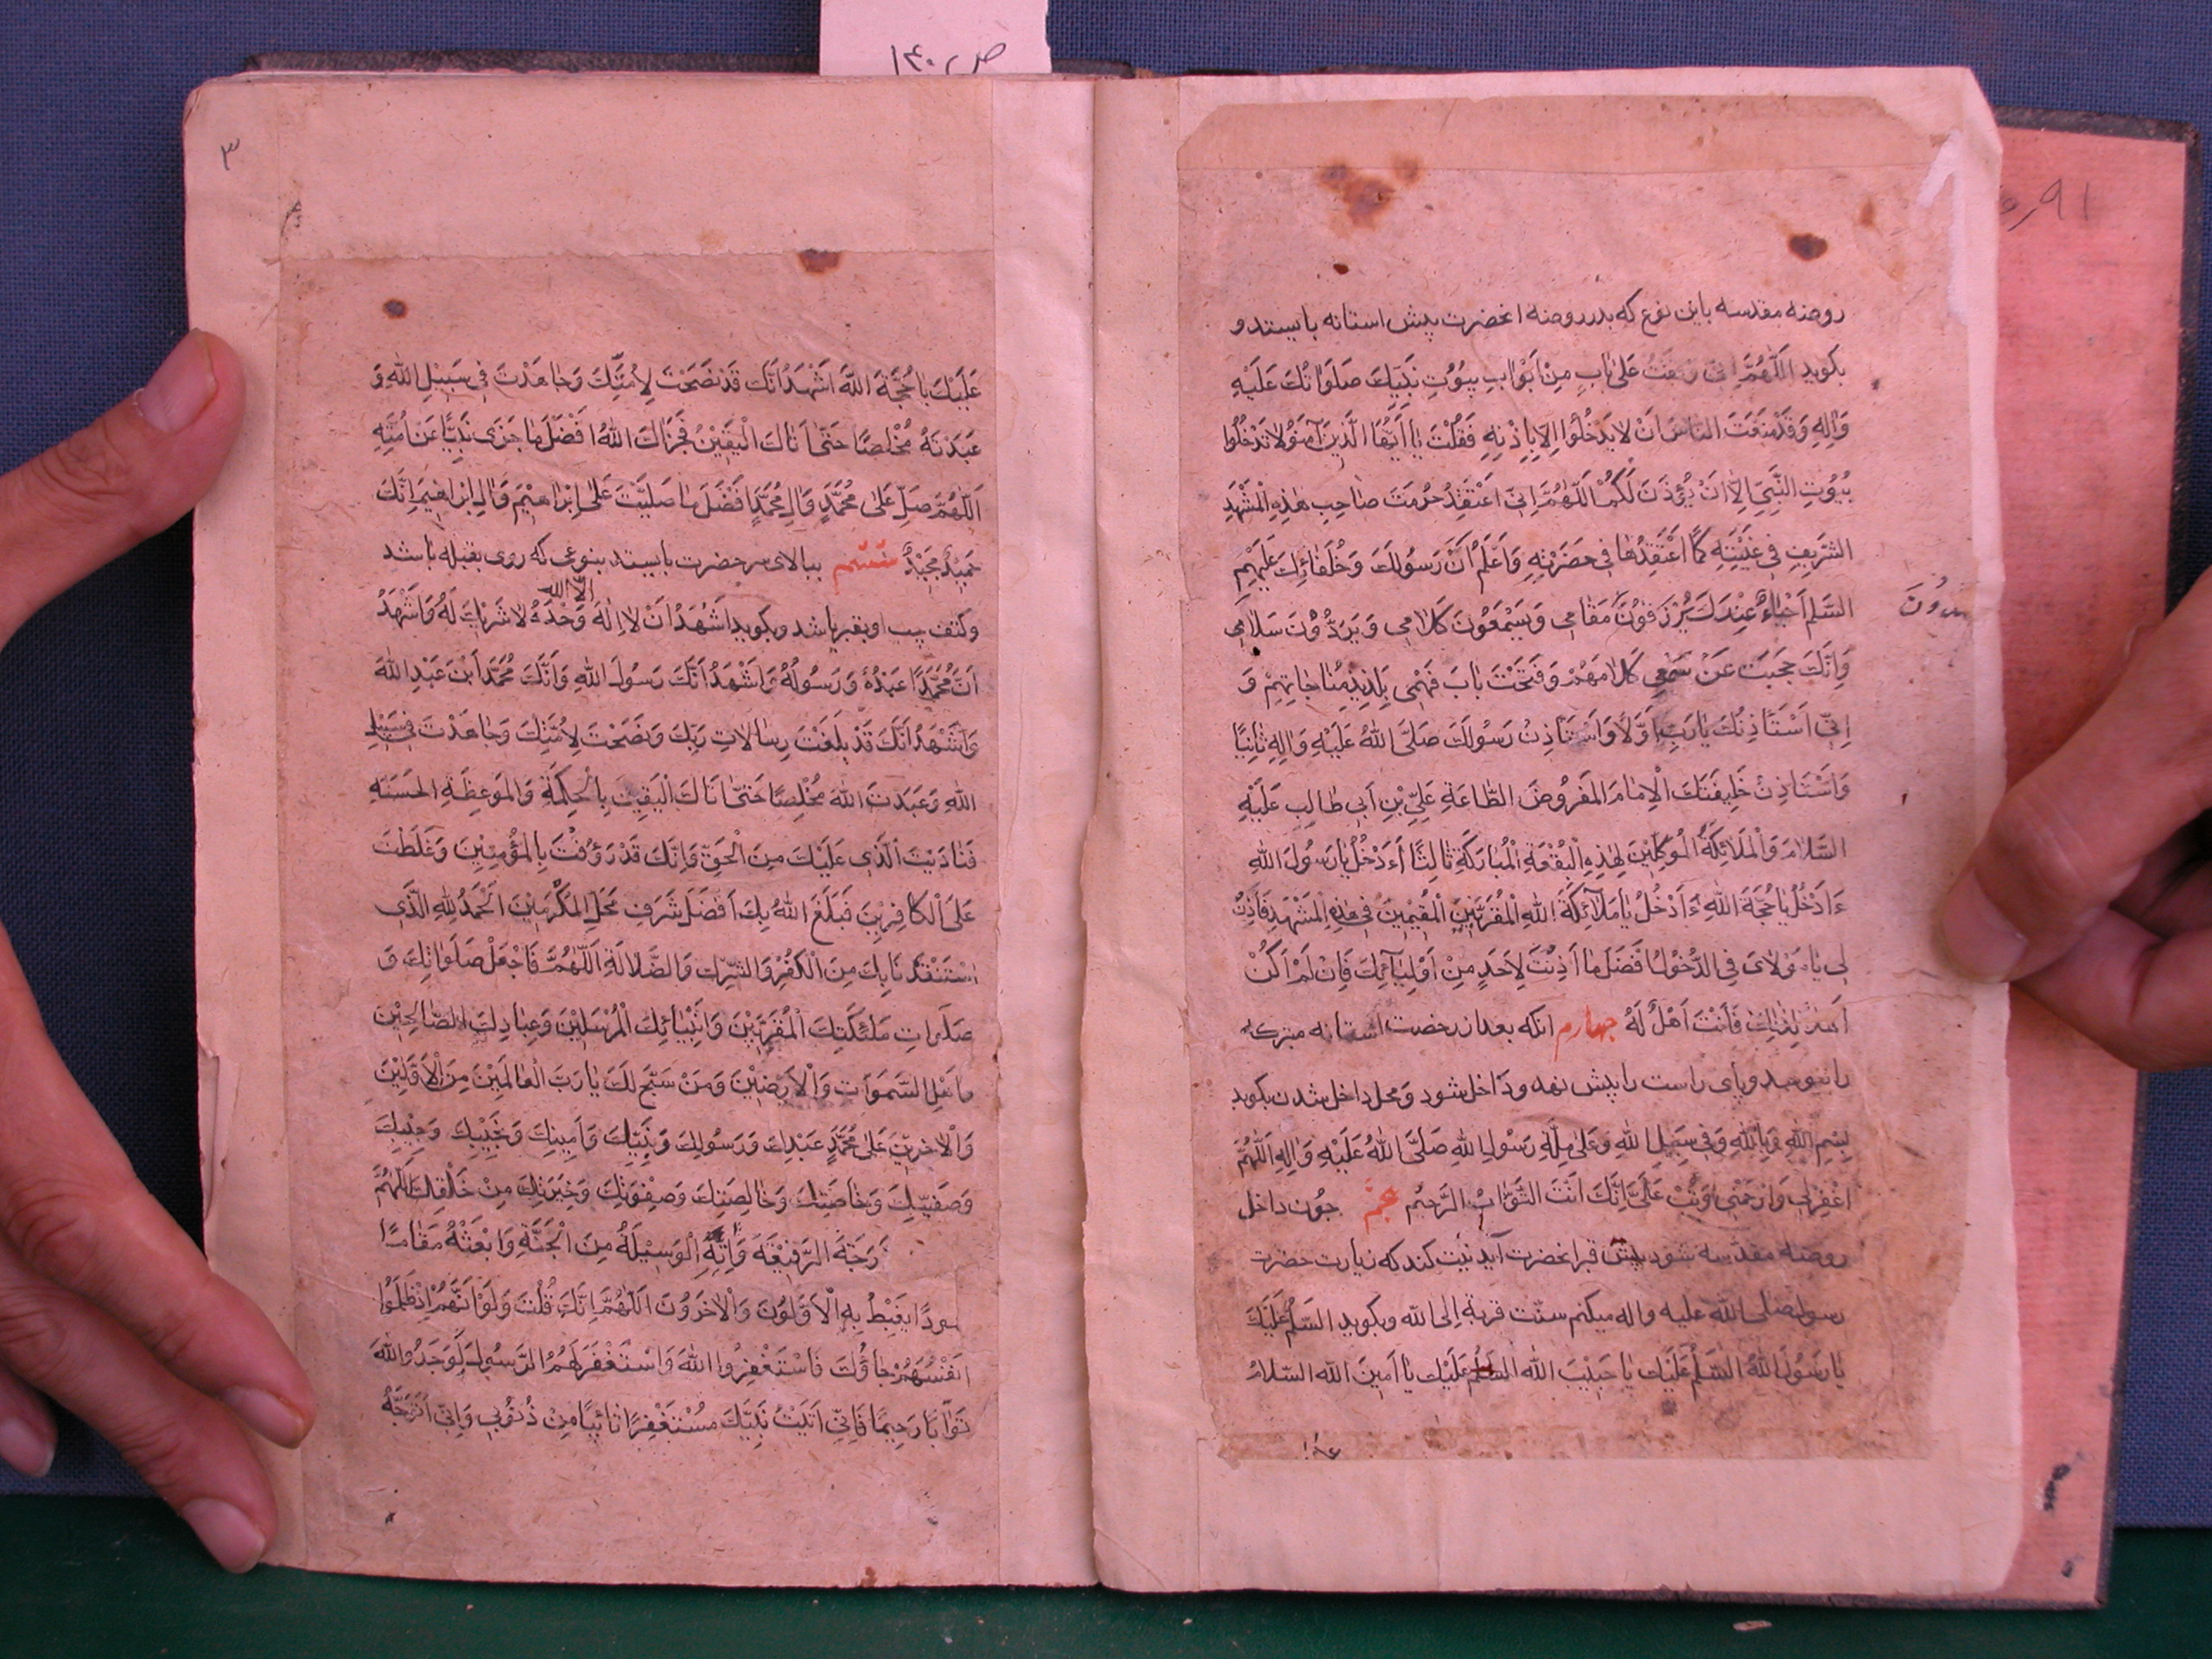 ص ر ۱۳۰
۹۱
روضه مقدسه باین نوع که بدر روضه انحضرت پیش استانه بایستد و
بکوید اَللّهُمَّ اِنّی وَقَفْتُ عَلی بابٍ مِنْ اَبْوابِ بیُوُتِ نَبِیِّكَ صَلَوٰاتُكَ عَلَیْهِ
وَاٰلِهِ وَقَدْ مَنَعْتَ النّاسَ اَنْ لا یَدْخُلُوا اِلاّ بِاِذْنِهِ فَقُلْتَ یٰا اَیُّهَا الَّذینَ آمَنُوا لا تَدْخُلُوا
بُیُوتَ النَّبِیِّ اِلاّ اَنْ یُؤْذَنَ لَكُمْ اَللّهُمَّ اِنّی اَعْتَقِدُ حُرْمَتَ صٰاحِبِ هٰذِهِ الْمَشْهَدِ
الشَّریفِ فی غَیْبَتِهِ كَمٰا اَعْتَقِدُهٰا فی حَضْرَتِهِ وَاَعْلَمُ اَنَّ رَسُولَكَ وَخُلَفٰائِكَ عَلَیْهِمُ
السَّلٰم اَحْیٰاءٌ عِنْدَكَ یُرْزَقوُنَ مَقٰامی وَیَسْمَعُونَ كَلٰامی وَیَرُدُّوُنَ سَلٰامی
وَاِنَّكَ حَجَبْتَ عَنْ سَمْعی كَلٰامَهُمْ وَفَتَحْتَ بٰابَ فَهْمی بِلَذیذِ مُنٰاجٰاتِهِمْ وَ
اِنّی اَسْتَاْذِنُكَ یٰا رَبِّ اَوَّلاً وَاَسْتَاْذِنُ رَسُولَكَ صَلَّی اللّهُ عَلَیْهِ وَاٰلِهِ ثٰانِیًا
وَاَسْتَاْذِنُ خَلِیفَتَكَ الْاِمٰامَ الْمَفْرُوضَ الطّٰاعَةِ عَلِیِّ بْنِ اَبی طٰالِبٍ عَلَیْهِ
السَّلٰامُ وَالْمَلٰائِكَةَ الْمُوَكِّلینَ لِهٰذِهِ الْبُقْعَةِ الْمُبٰارَكَةِ ثٰالِثًا أَءَدْخُلُ یٰا رَسُولَ اللّهِ
ءَاَدْخُلُ یٰا حُجَّةَ اللّهِ ءَاَدْخُلُ یٰا مَلٰائِكَةَ اللّهِ الْمُقَرَّبینَ الْمُقیمینَ فی هٰذِهِ الْمَشْهَدِ فَاْذَنْ
لی یٰا مَوْلٰایَ فِی الدُّخُولِ اَفْضَلَ مٰا اَذِنْتَ لِاَحَدٍ مِنْ اَوْلِیٰآئِكَ فَاِنْ لَمْ اَكُنْ
اَهْلاً لِذٰلِكَ فَاَنْتَ اَهْلٌ لَهُ چهارم انکه بعد از رخصت استانه متبرکه
را ببوسد و پای راست را پیش نهد و داخل شود و محل داخل شدن بکوید
بِسْمِ اللّهِ وَبِاللّهِ وَفی سَبیلِ اللّهِ وَعَلی مِلَّةِ رَسُولِ اللّهِ صَلَّی اللّهُ عَلَیْهِ وَاٰلِهِ اَللّهُمَّ
اغْفِرْلی وَارْحَمْنی وَتُبْ عَلَیَّ اِنَّكَ اَنْتَ التَّوّٰابُ الرَّحیُم پنجم چون داخل
روضه مقدسه شود پیش قبر انحضرت آید نیّت کند که زیارت حضرت
رسول صلی الله علیه واله میکنم سنّت قربة اِلی الله وبکوید السَّلٰمُ عَلَیْكَ
یٰا رَسُولَ اللّهُ السَّلٰمُ عَلَیْك یٰا حَبیْبَ الله السَّلٰمُ عَلَیْك یٰا اَمینَ الله السَّلٰامُ
۳
عَلَیْكَ یٰا حُجَّةَ اللّهِ اَشْهَدُ اَنَّكَ قَدْ نَصَحْتَ لِاُمَّتِكَ وَجٰاهَدْتَ فی سَبیلِ اللّهِ وَ
عَبَدْتَهُ مُخْلِصًا حَتّیٰ اَتٰاكَ الْیَقینُ فَجَزٰاكَ اللّهُ اَفْضَلَ مٰا جَزی نَبِیًّا عَنْ اُمَّتِهِ
اَللّهُمَّ صَلِّ عَلٰی مُحَمَّدٍ وَاٰلِ مُحَمَّدٍ اَفْضَلَ مٰا صَلَّیْتَ عَلٰی اِبْرٰاهیمَ وَاٰلِ اِبْرٰاهیمَ اِنَّكَ
حَمیدٌ مَجیدٌ ششم ببالای سر حضرت بایستد بنوعی که روی بقبله باشد
وکتف چپ او بقبر باشد وبکوید اَشْهَدُ اَنْ لا اِلٰهَ الاّ الله وَحْدَهُ لا شَریكَ لَهُ وَاَشْهَدُ
اَنَّ مُحَمَّدًا عَبْدُهُ وَرَسُولُهُ وَاَشْهَدُ اَنَّكَ رَسُولُ اللّهِ وَاَنَّكَ مُحَمَّدُ ابْنُ عَبْدِ اللّهِ
وَاَشْهَدُ اَنَّكَ قَدْ بَلَّغْتَ رِسٰالاتِ رَبِّكَ وَنَصَحْتَ لِاُمَّتِكَ وَجٰاهَدْتَ فی سَبیلِ
اللّهِ وَعَبَدْتَ اللّهَ مُخْلِصًا حَتّیٰ اَتٰاكَ الْیَقینُ بِالْحِكْمَةِ وَالْمَوْعِظَةِ الْحَسَنَةِ
فَنٰادَیْتَ الَّذی عَلَیْكَ مِنَ الْحَقِّ وَاِنَّكَ قَدْ رَؤُفْتَ بِالْمُؤْمِنینَ وَغَلَظْتَ
عَلَی الْكٰافِرینَ فَبَلَغَ اللّهُ بِكَ اَفْضَلَ شَرَفِ مَحَلِّ الْمُكَرَّمینَ اَلْحَمْدُ لِلّهِ الَّذی
اسْتَنْقَذَنٰا بِكَ مِنَ الْكُفْرِ وَالشِّرْكِ وَالضَّلٰالَةِ اَللّهُمَّ فَاجْعَلْ صَلَوٰاتِكَ وَ
صَلَوٰاتِ مَلٰئِكَتِكَ الْمُقَرَّبینَ وَاَنْبِیٰائِكَ الْمُرْسَلینَ وَعِبٰادِكَ الصّٰالِحینَ
وَاَهْلِ السَّمَوٰات وَالْاَرَضینَ وَمَنْ سَبَّحَ لَكَ یٰا رَبَّ الْعٰالَمینَ مِنَ الْاَوَّلینَ
وَالْاٰخِرینَ عَلٰی مُحَمَّدٍ عَبْدِكَ وَرَسُولِكَ وَنَبِیِّكَ وَاَمینِكَ وَنَجِیبِكَ وَحَبیبِكَ
وَصَفِیِّكَ وَخٰاصَّتِكَ وَخٰالِصَتِكَ وَصِفْوَتِكَ وَخِیَرَتِكَ مِنْ خَلْقِكَ اَللّهُمَّ
دَرَجَةَ الرَّفیْعَةَ وَاٰتِهِ الْوَسیْلَةَ مِنَ الْجَنَّةِ وَابْعَثْهُ مَقٰامًا
یَغْبِطُ بِهِ الْاَوَّلُونَ وَالْاٰخِرُونَ اَللّهُمَّ اِنَّكَ قُلْتَ وَلَوْ اَنَّهُمْ اِذْ ظَلَمُوا
اَنْفُسَهُمْ جٰاؤُكَ فَاسْتَغْفِرُوا اللّهَ وَاسْتَغْفَرَ لَهُمُ الرَّسُولُ لَوَجَدُوا اللّهَ
تَوّٰابًا رَحیمًا فَاِنّی اَتَیْتُ نَبِیَّكَ مُسْتَغْفِرًا تٰائِبًا مِنْ ذُنُوبی وَاِنّی اَتَوَجَّهُ